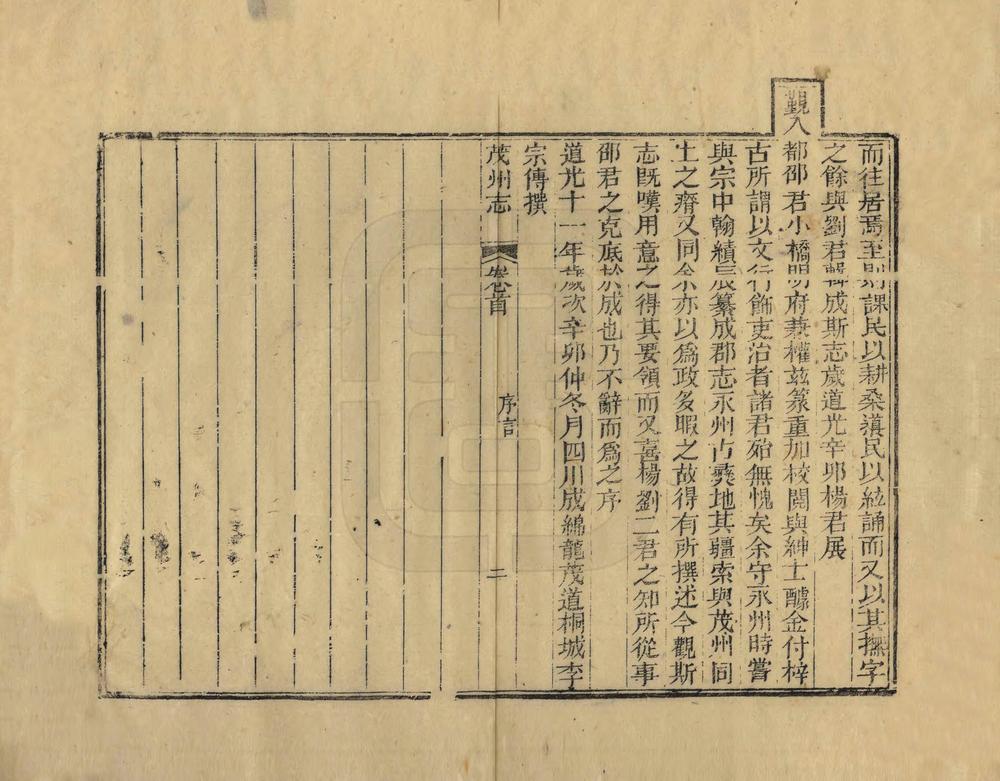 而往居焉至則課民以耕桑滇民以絃誦而又以其撫字
之餘與劉君輯成斯志歲道光辛卯楊君展
覲入
都邵君小橋明府兼權茲篆重加校閱與紳士醵金付梓
古所謂以文行飾吏治者諸君殆無愧矣余守永州時嘗
與宗中翰績辰纂成郡志永州古彝地其疆索與茂州同
土之瘠又同余亦以爲政多暇之故得有所撰述今觀斯
志旣嘆用意之得其要領而又喜楊劉二君之知所從事
邵君之克底於成也乃不辭而爲之序
道光十一年歲次辛卯仲冬月四川成綿龍茂道桐城李
宗傳撰
茂州志 卷首 序言 二